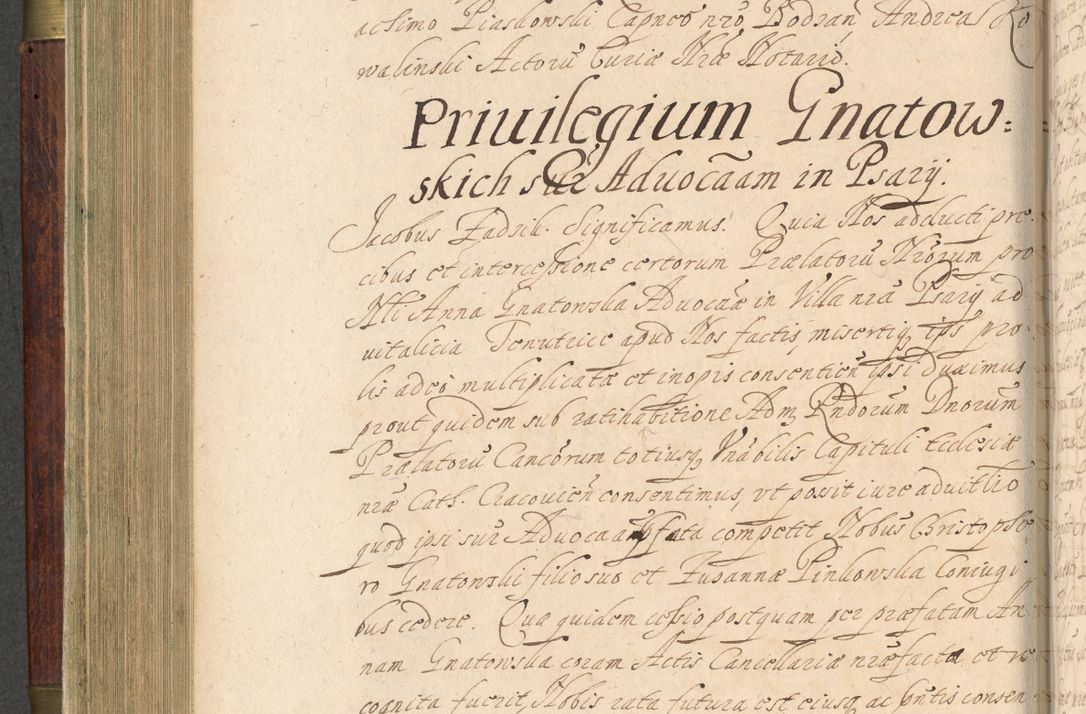 acsimo Piaskowski Capneo nrō Bodzan̄ Andrea Ko
walinski Actorū Curiæ Nræ Notario.
Priuilegium Gnatow=
skich sup Aduocãam in Psarÿ.
Jacobus Zadzik. Significamus. Quia Nos adducti pre
cibus et intercessione certorum Prælatorū Nrorum pro
Nli Anna Gnatowska Aduocæ in Villa nra Psarÿ ad
uitalicia Tenutrice apud Nos factis, misertiq ips pro
lis adeo multiplicatæ et inopis consentien̄ ipsi Duximus
prout quidem sub ratihabitione Admq Rndorum Dnorum
Prælatorū Cancōrum totiusq Vnābilis Capituli Ecclesiæ
nræ Cath. Cracouien̄ consentimus, vt possit iure aduitlio
quod ipsi sup Aduocaam pfata competit Nobus Christopho
ro Gnatowski filio suo et Zusannæ Pinkowska Coniugi
bus cedere. Quæ quidem cessio postquam per præfatam An
nam Gnatowska coram Actis Cancellariæ nræ facta et re
cognita fuerit, Nobis rata futura est eiusq ac pñtis consen